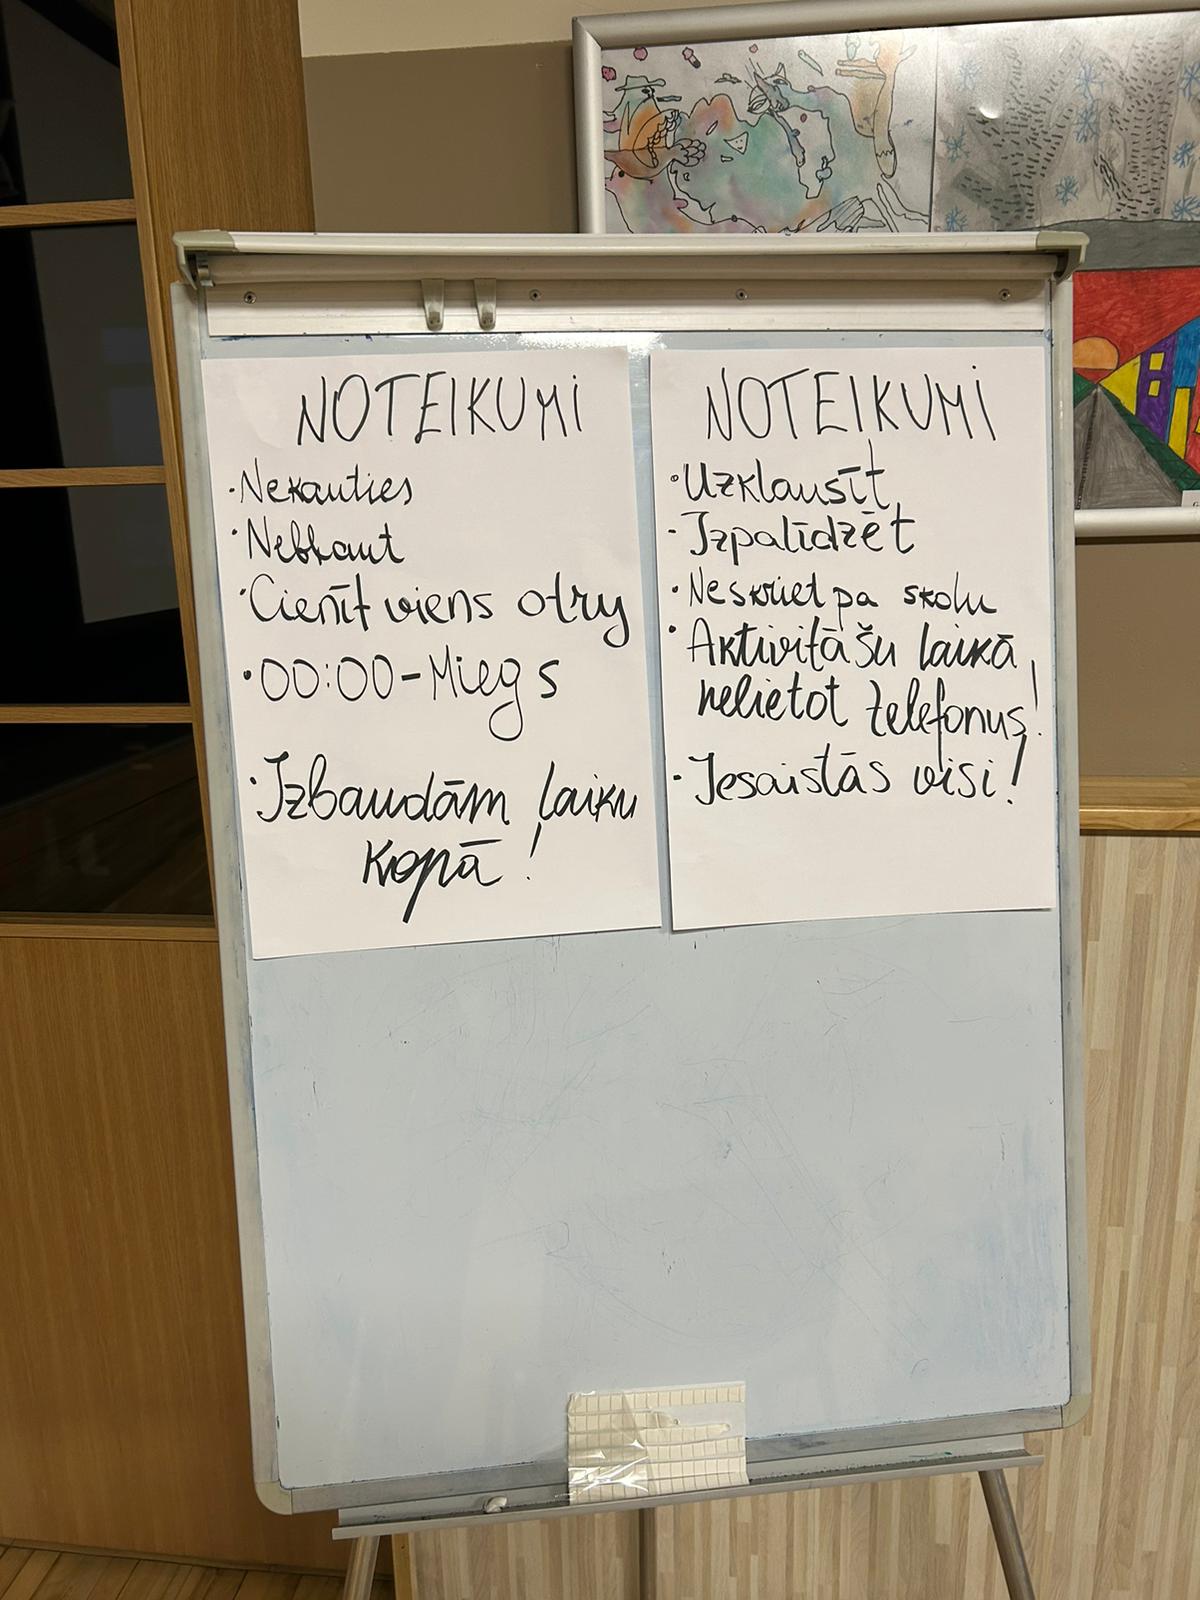 NOTEIKUMI
· Nekauties
· Nebļaut
· Cienīt viens otry
· 00:00 - Miegs
· Izbaudām laiku
kopā!
NOTEIKUMI
· Uzklausīt
· Izpalīdzēt
· Neskriet pa skolu
· Aktivitāšu laikā
nelietot telefonus!
· Iesaistās visi!